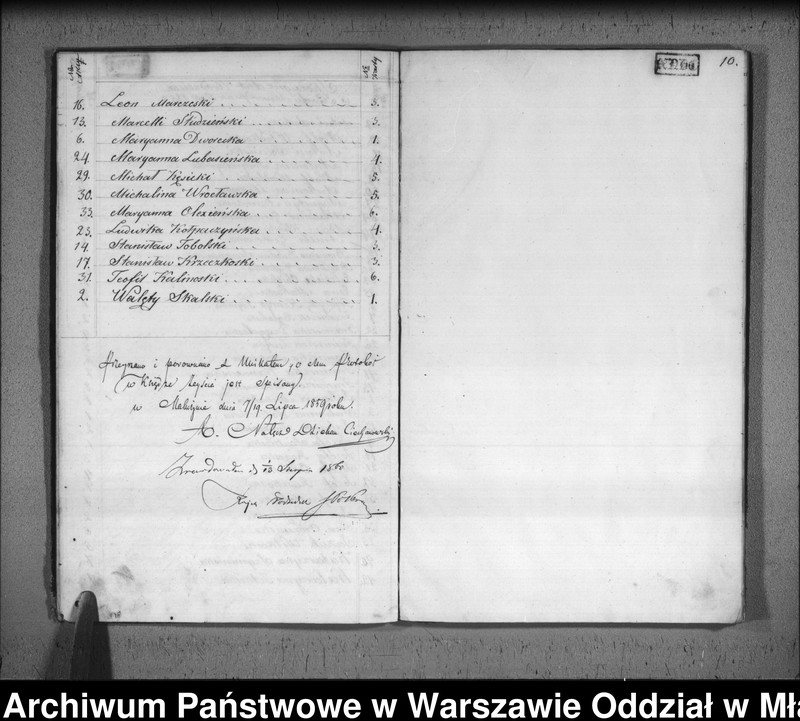 No Aktu
No Karty
16. Leon Marczeski 3.
13. Marcelli Studzieński 3.
6. Maryanna Dworecka 1.
24. Maryanna Lubasieńska 4.
29. Michał Kęsicki 5.
30. Michalina Wrocławska 5.
33. Maryanna Olexieńska 6.
23. Ludwika Kołpaczyńska 4.
14. Stanisław Tobolski 3.
17. Stanisław Krzeczkoski 3.
31. Teofil Kalinoski 6.
2. Walęty Skalski 1.
Przejrzano i porównano z Unikatem, o czem Protokół
w Księdze tejsze jest spisany.
w dnia 7/19 Lipca 1859 roku.
A. Dziekan Ciechanowski
d 1/13 1860
10.
Archiwum Państwowe w Warszawie Oddział w Mła